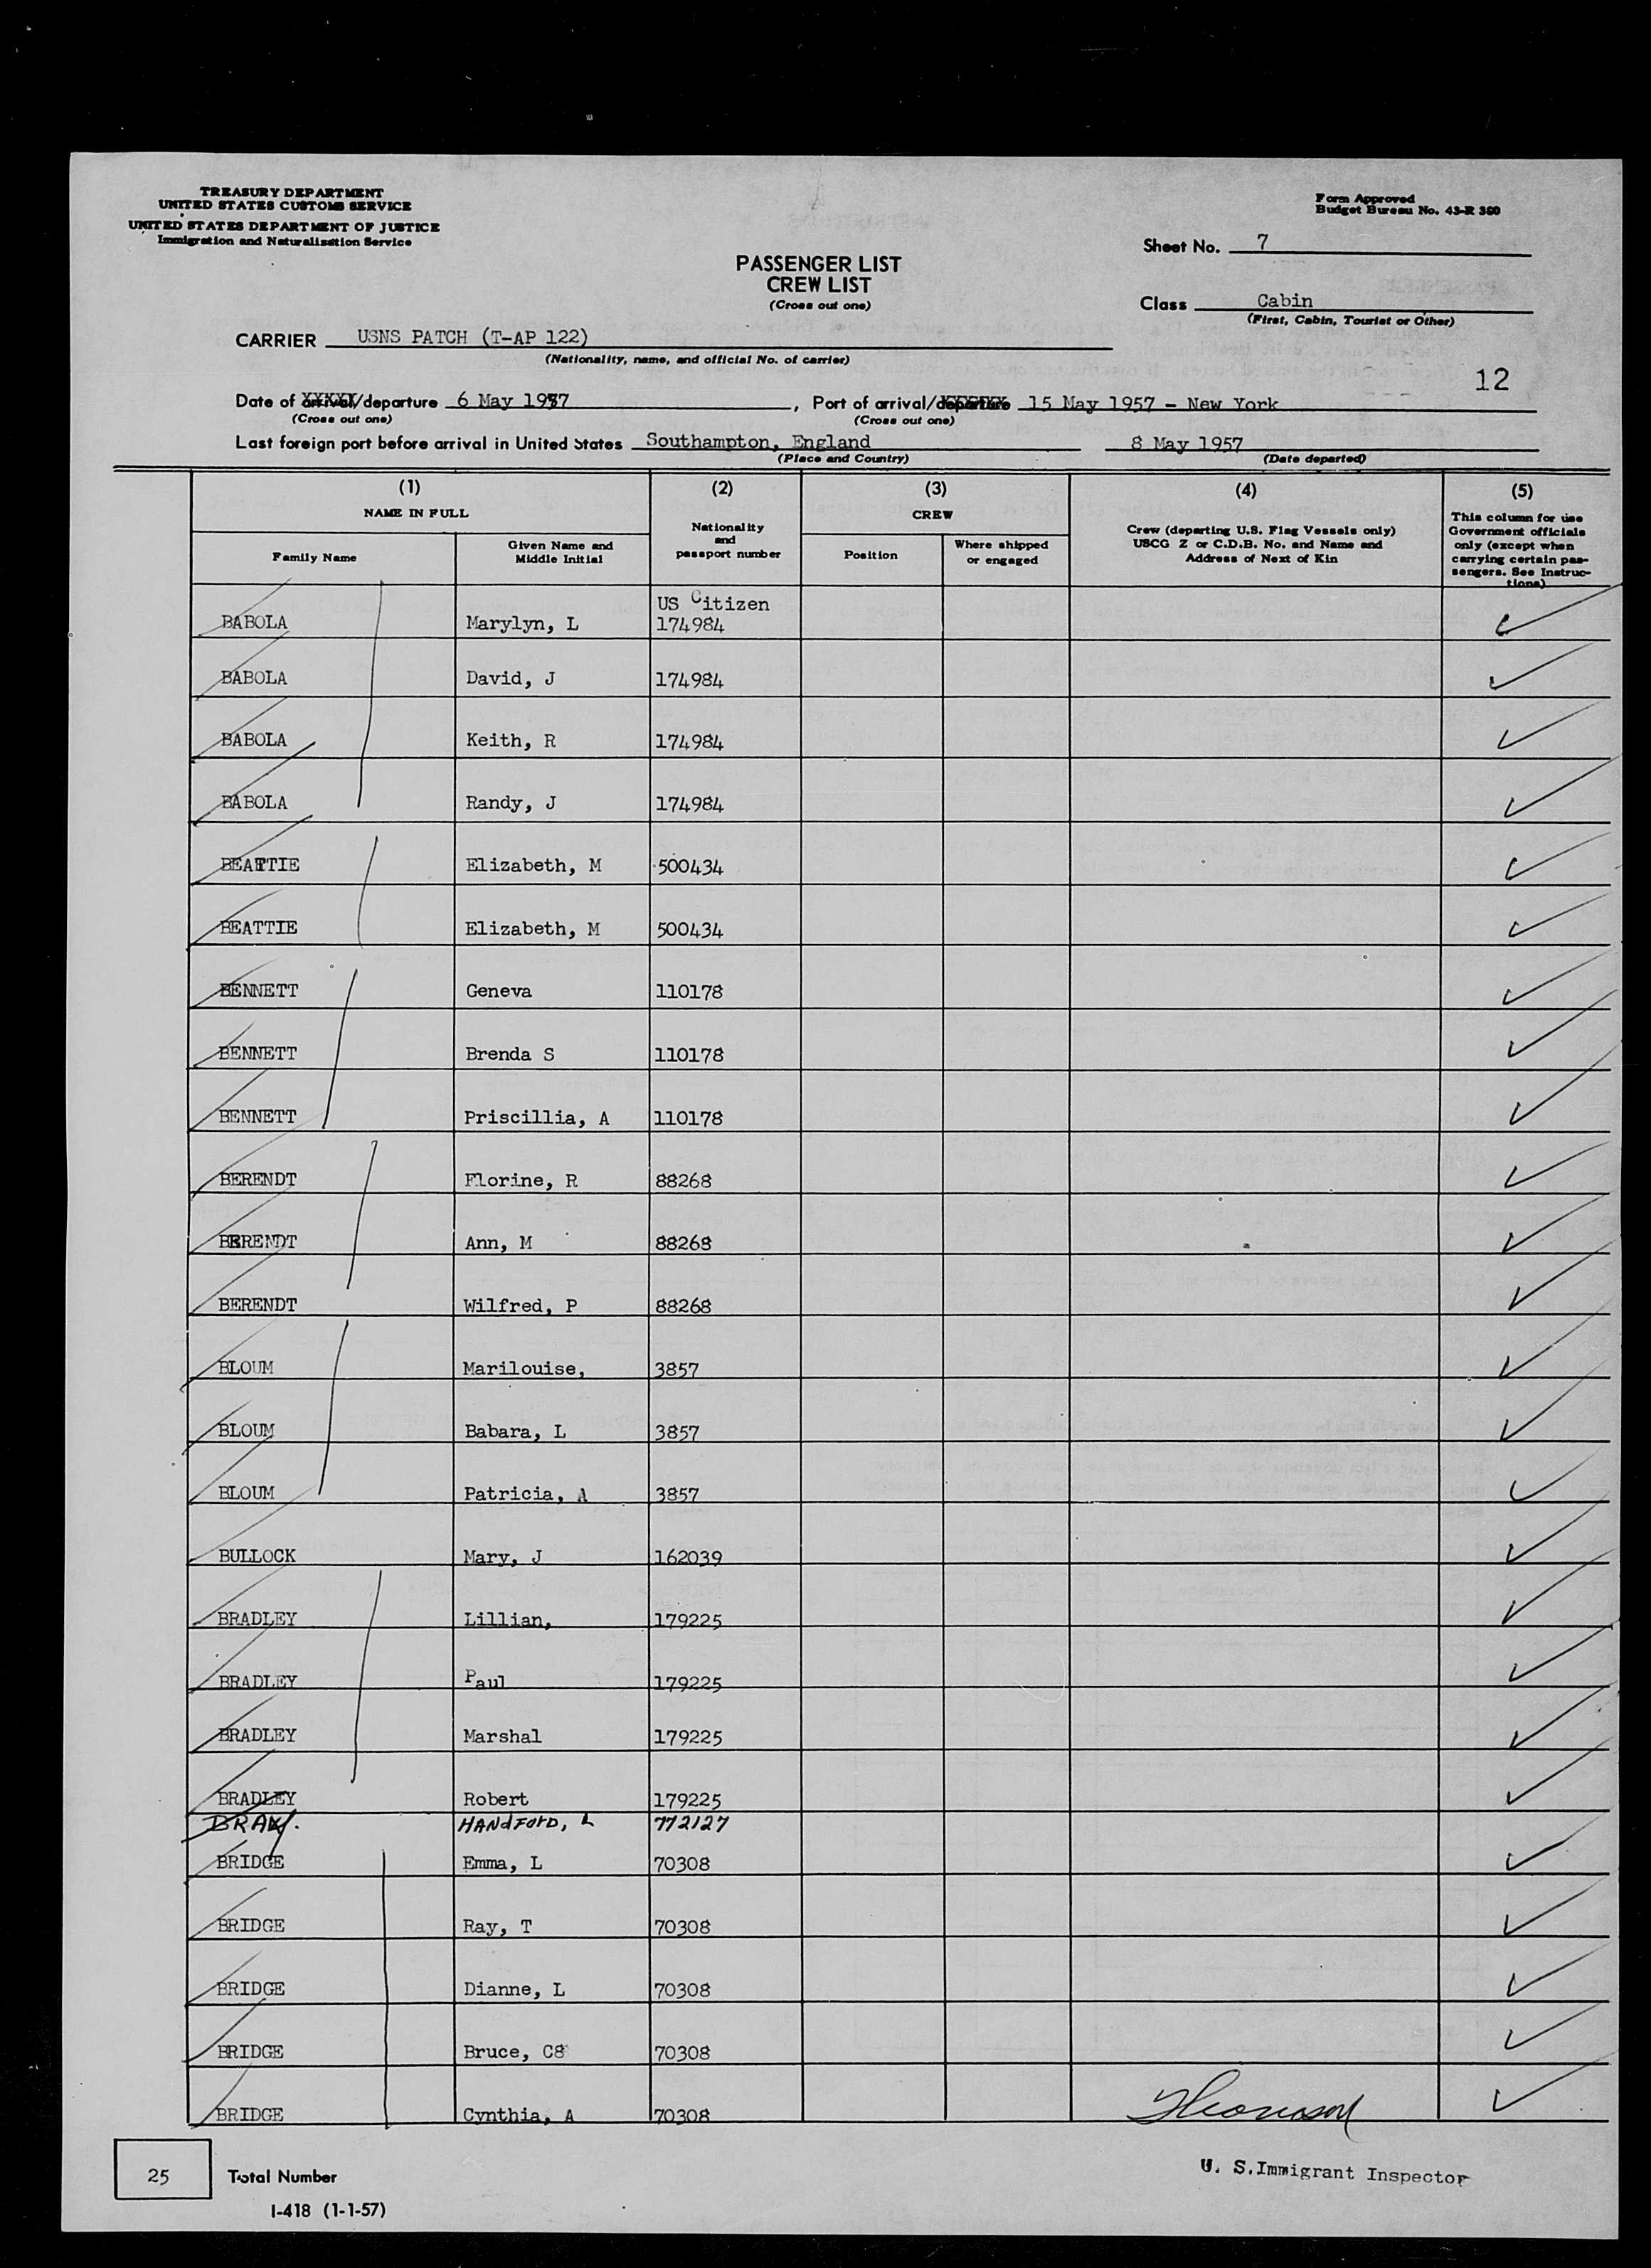 TREASURY DEPARTMENT
UNITED STATES CUSTOMS SERVICE
UNITED STATES DEPARTMENT OF JUSTICE
Immigration and Naturalization Service
Form Approved
Budget Bureau No. 43-R 380
Sheet No. 7
PASSENGER LIST
CREW LIST
(Cross out one)
Class Cabin
(First, Cabin, Tourist or Other)
CARRIER USNS PATCH (T-AP 122)
(Nationality, name, and official No. of carrier)
12
Date of arrival/departure 6 May 1957, Port of arrival/departure 15 May 1957 - New York
(Cross out one) (Cross out one)
Last foreign port before arrival in United States Southampton, England 8 May 1957
(Place and Country) (Date departed)
(1) (2) (3) (4) (5)
NAME IN FULL
Family Name
Given Name and
Middle Initial
Nationality
and
passport number
CREW
Position
Where shipped
or engaged
Crew (departing U.S. Flag Vessels only)
USCG Z or C.D.B. No. and Name and
Address of Next of Kin
This column for use
Government officials
only (except when
carrying certain pas-
sengers. See Instruc-
tions)
US Citizen
BABOLA Marylyn, L 174984
BABOLA David, J 174984
BABOLA Keith, R 174984
BABOLA Randy, J 174984
BEATTIE Elizabeth, M 500434
BEATTIE Elizabeth, M 500434
BENNETT Geneva 110178
BENNETT Brenda S 110178
BENNETT Priscillia, A 110178
BERENDT Florine, R 88268
BERENDT Ann, M 88268
BERENDT Wilfred, P 88268
BLOUM Marilouise, 3857
BLOUM Babara, L 3857
BLOUM Patricia, A 3857
BULLOCK Mary, J 162039
BRADLEY Lillian, 179225
BRADLEY Paul 179225
BRADLEY Marshal 179225
BRADLEY Robert 179225
BRAY. HANdFOrD, L 772127
BRIDGE Emma, L 70308
BRIDGE Ray, T 70308
BRIDGE Dianne, L 70308
BRIDGE Bruce, C8 70308
BRIDGE Cynthia, A 70308
25 Total Number
U. S.Immigrant Inspector
I-418 (1-1-57)